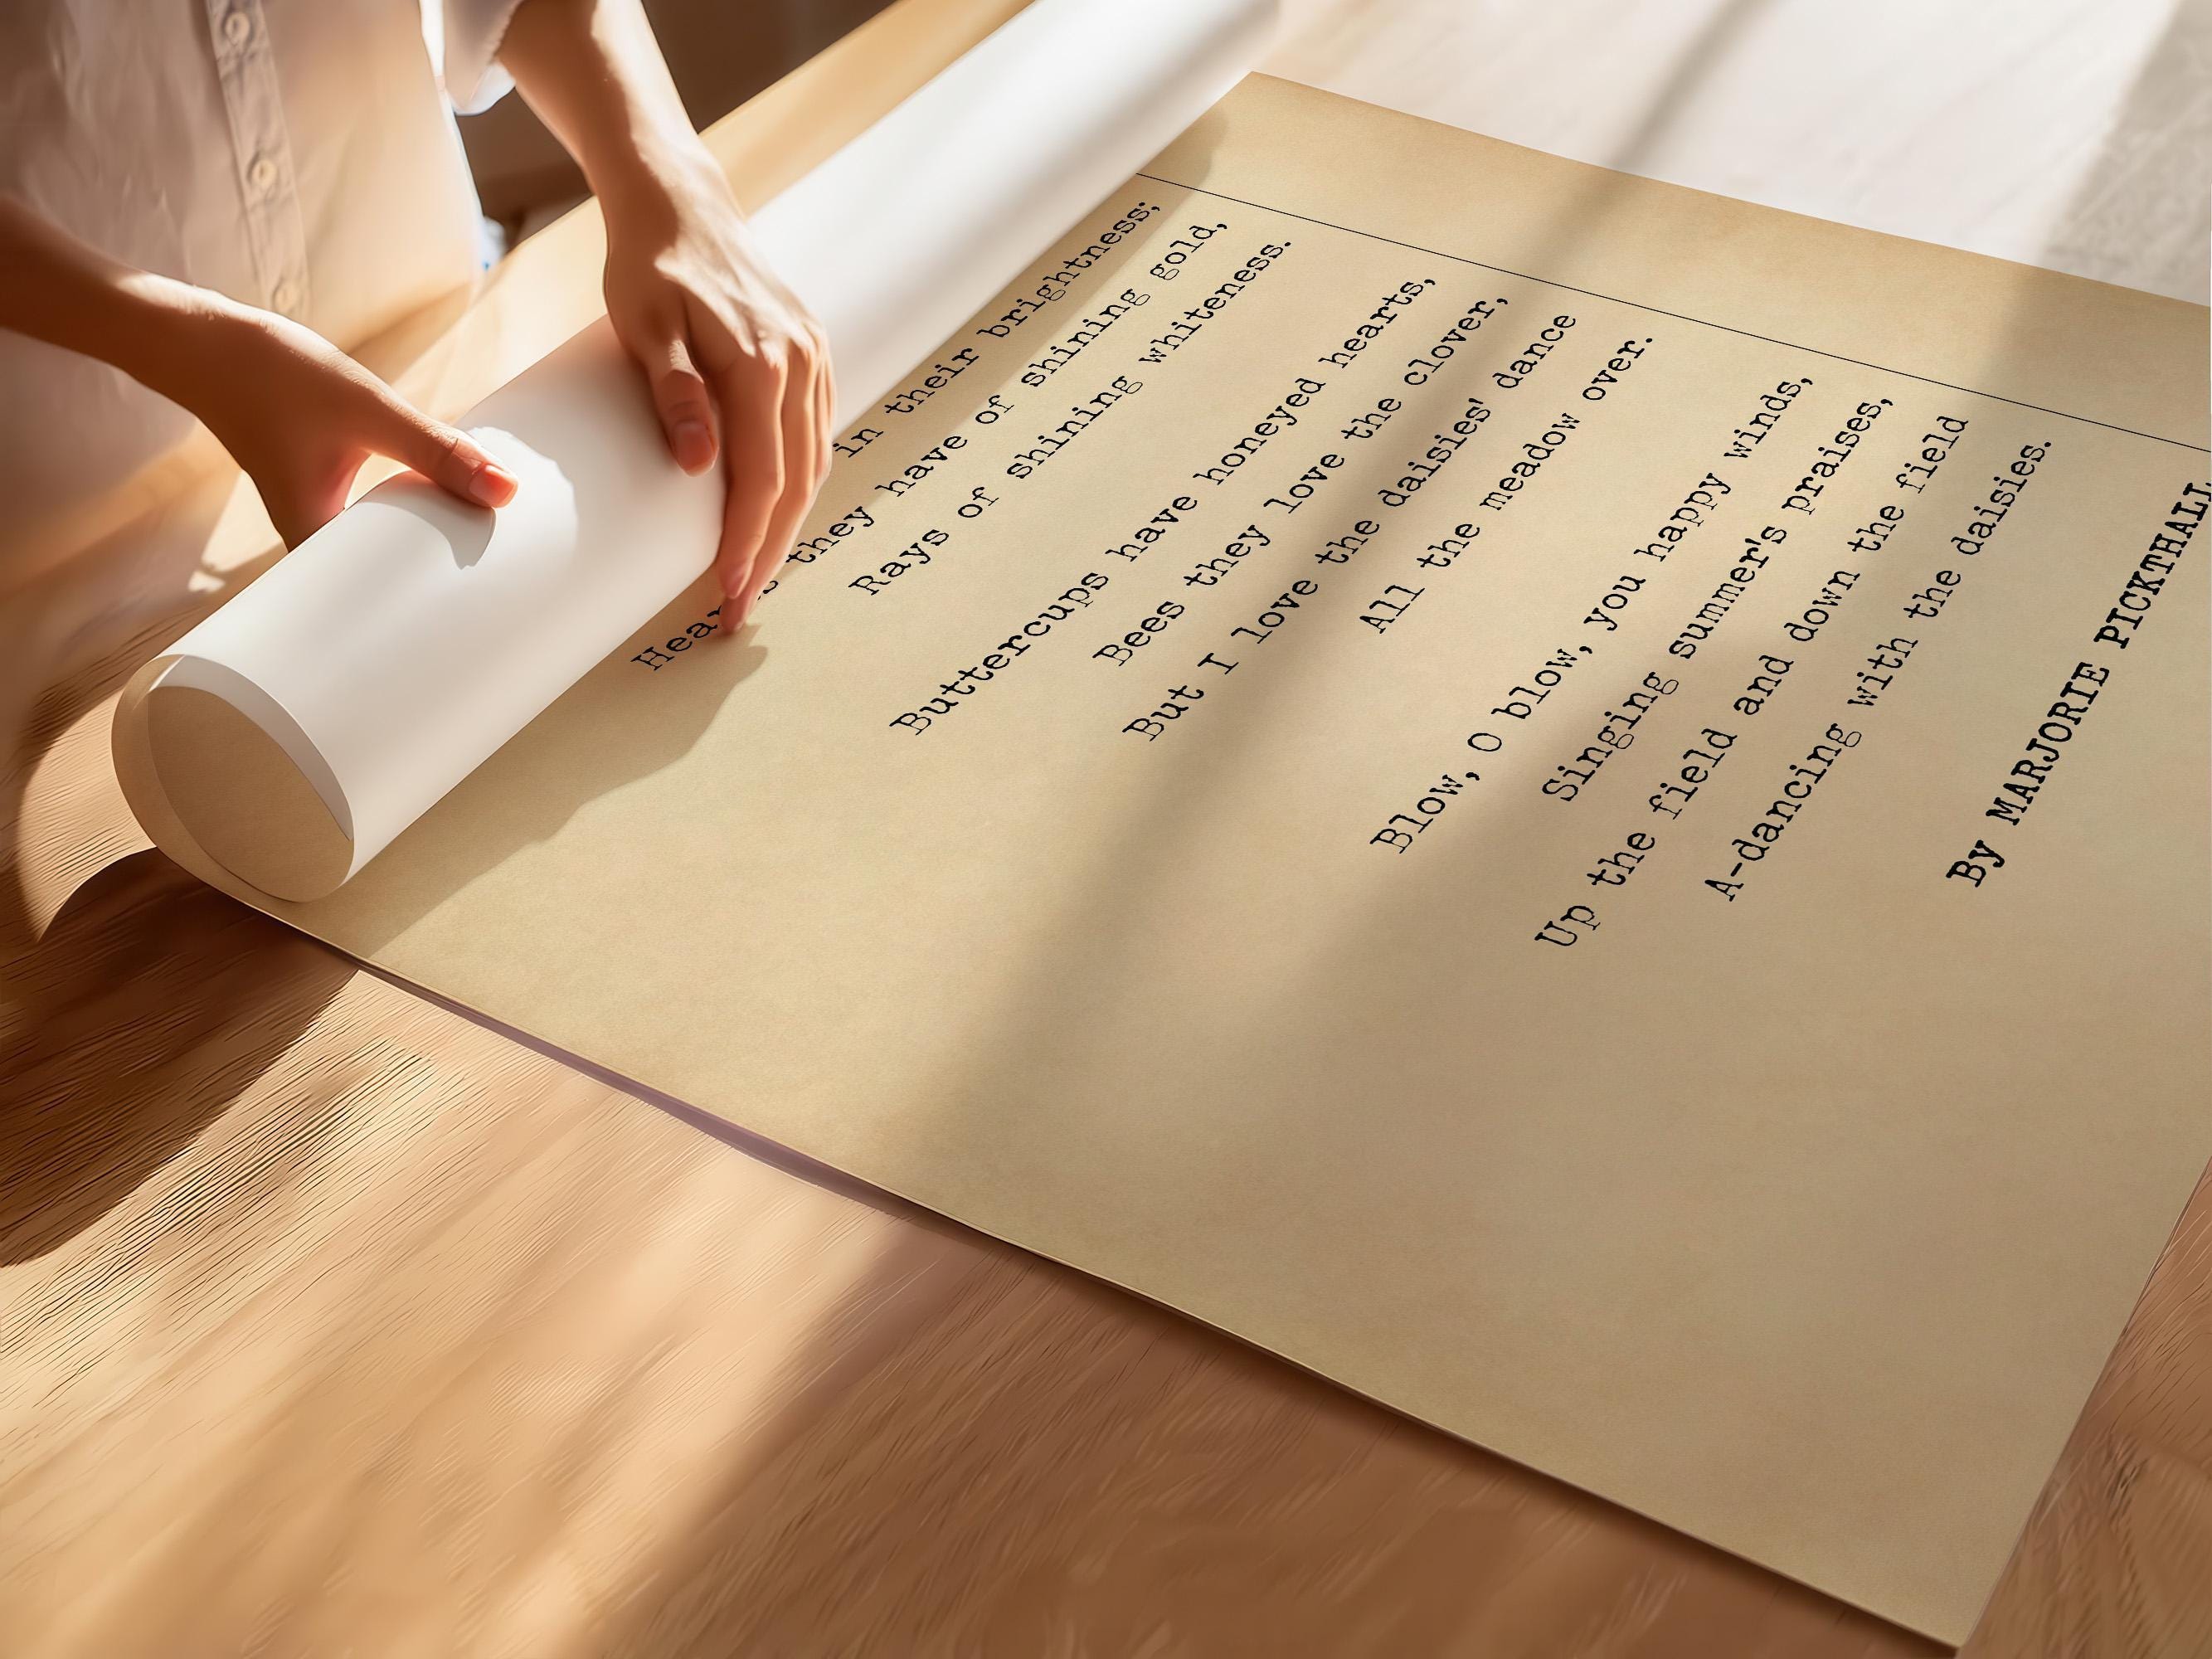 in their brightness;
Hearts they have of shining gold,
Rays of shining whiteness.
Buttercups have honeyed hearts,
Bees they love the clover,
But I love the daisies' dance
All the meadow over.
Blow, O blow, you happy winds,
Singing summer's praises,
Up the field and down the field
A-dancing with the daisies.
By MARJORIE PICKTHALL